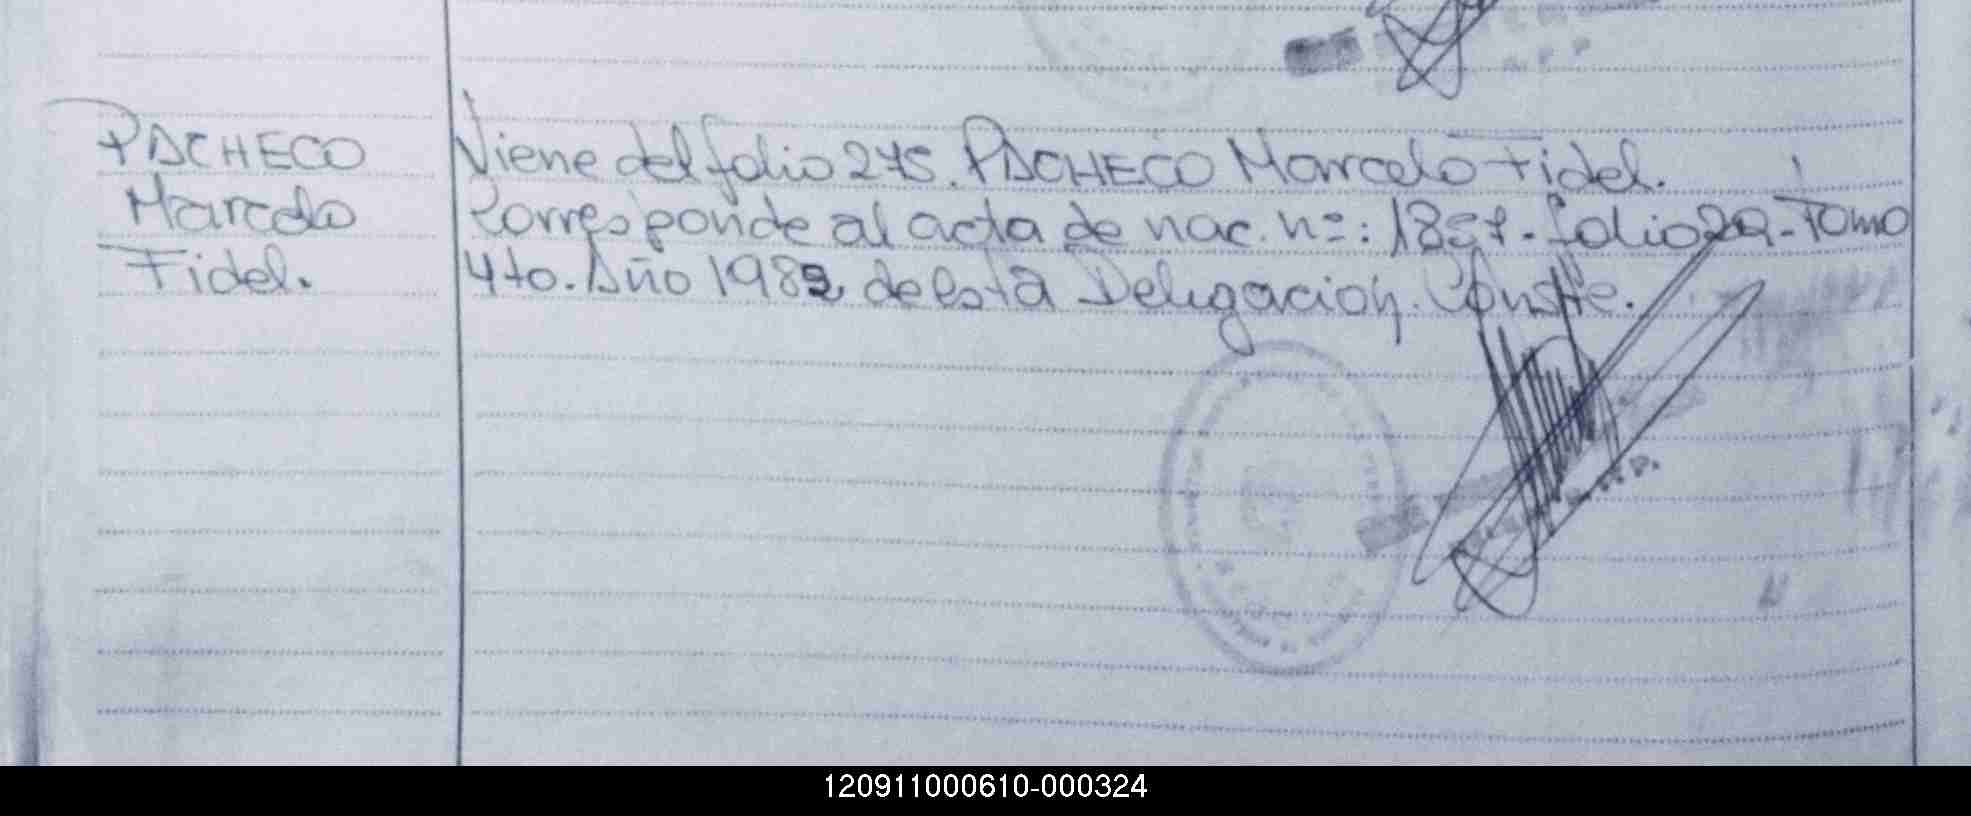 PACHECO
Marcelo
Fidel.
Viene del folio 275. PACHECO Marcelo Fidel.
Corresponde al acta de nac. nº: 1857. folio 29. Tomo
4to. Año 1982 de esta Delegación. Conste.
120911000610-000324